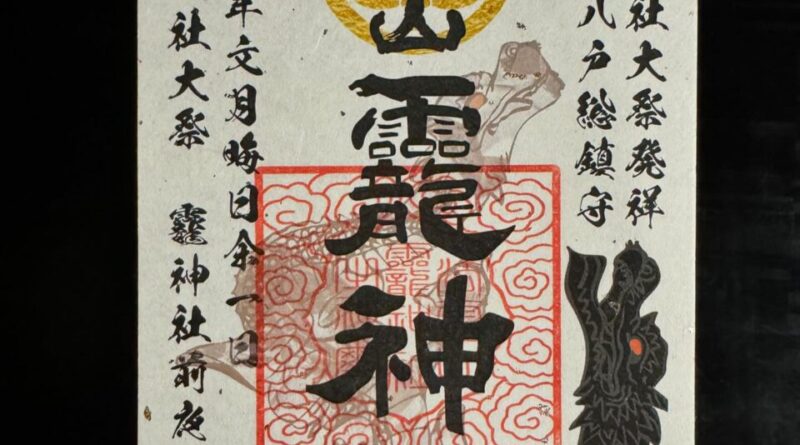 社大祭発祥
八戸総鎮守
山龗神
年文月晦日余一日
社大祭 龗神社前夜